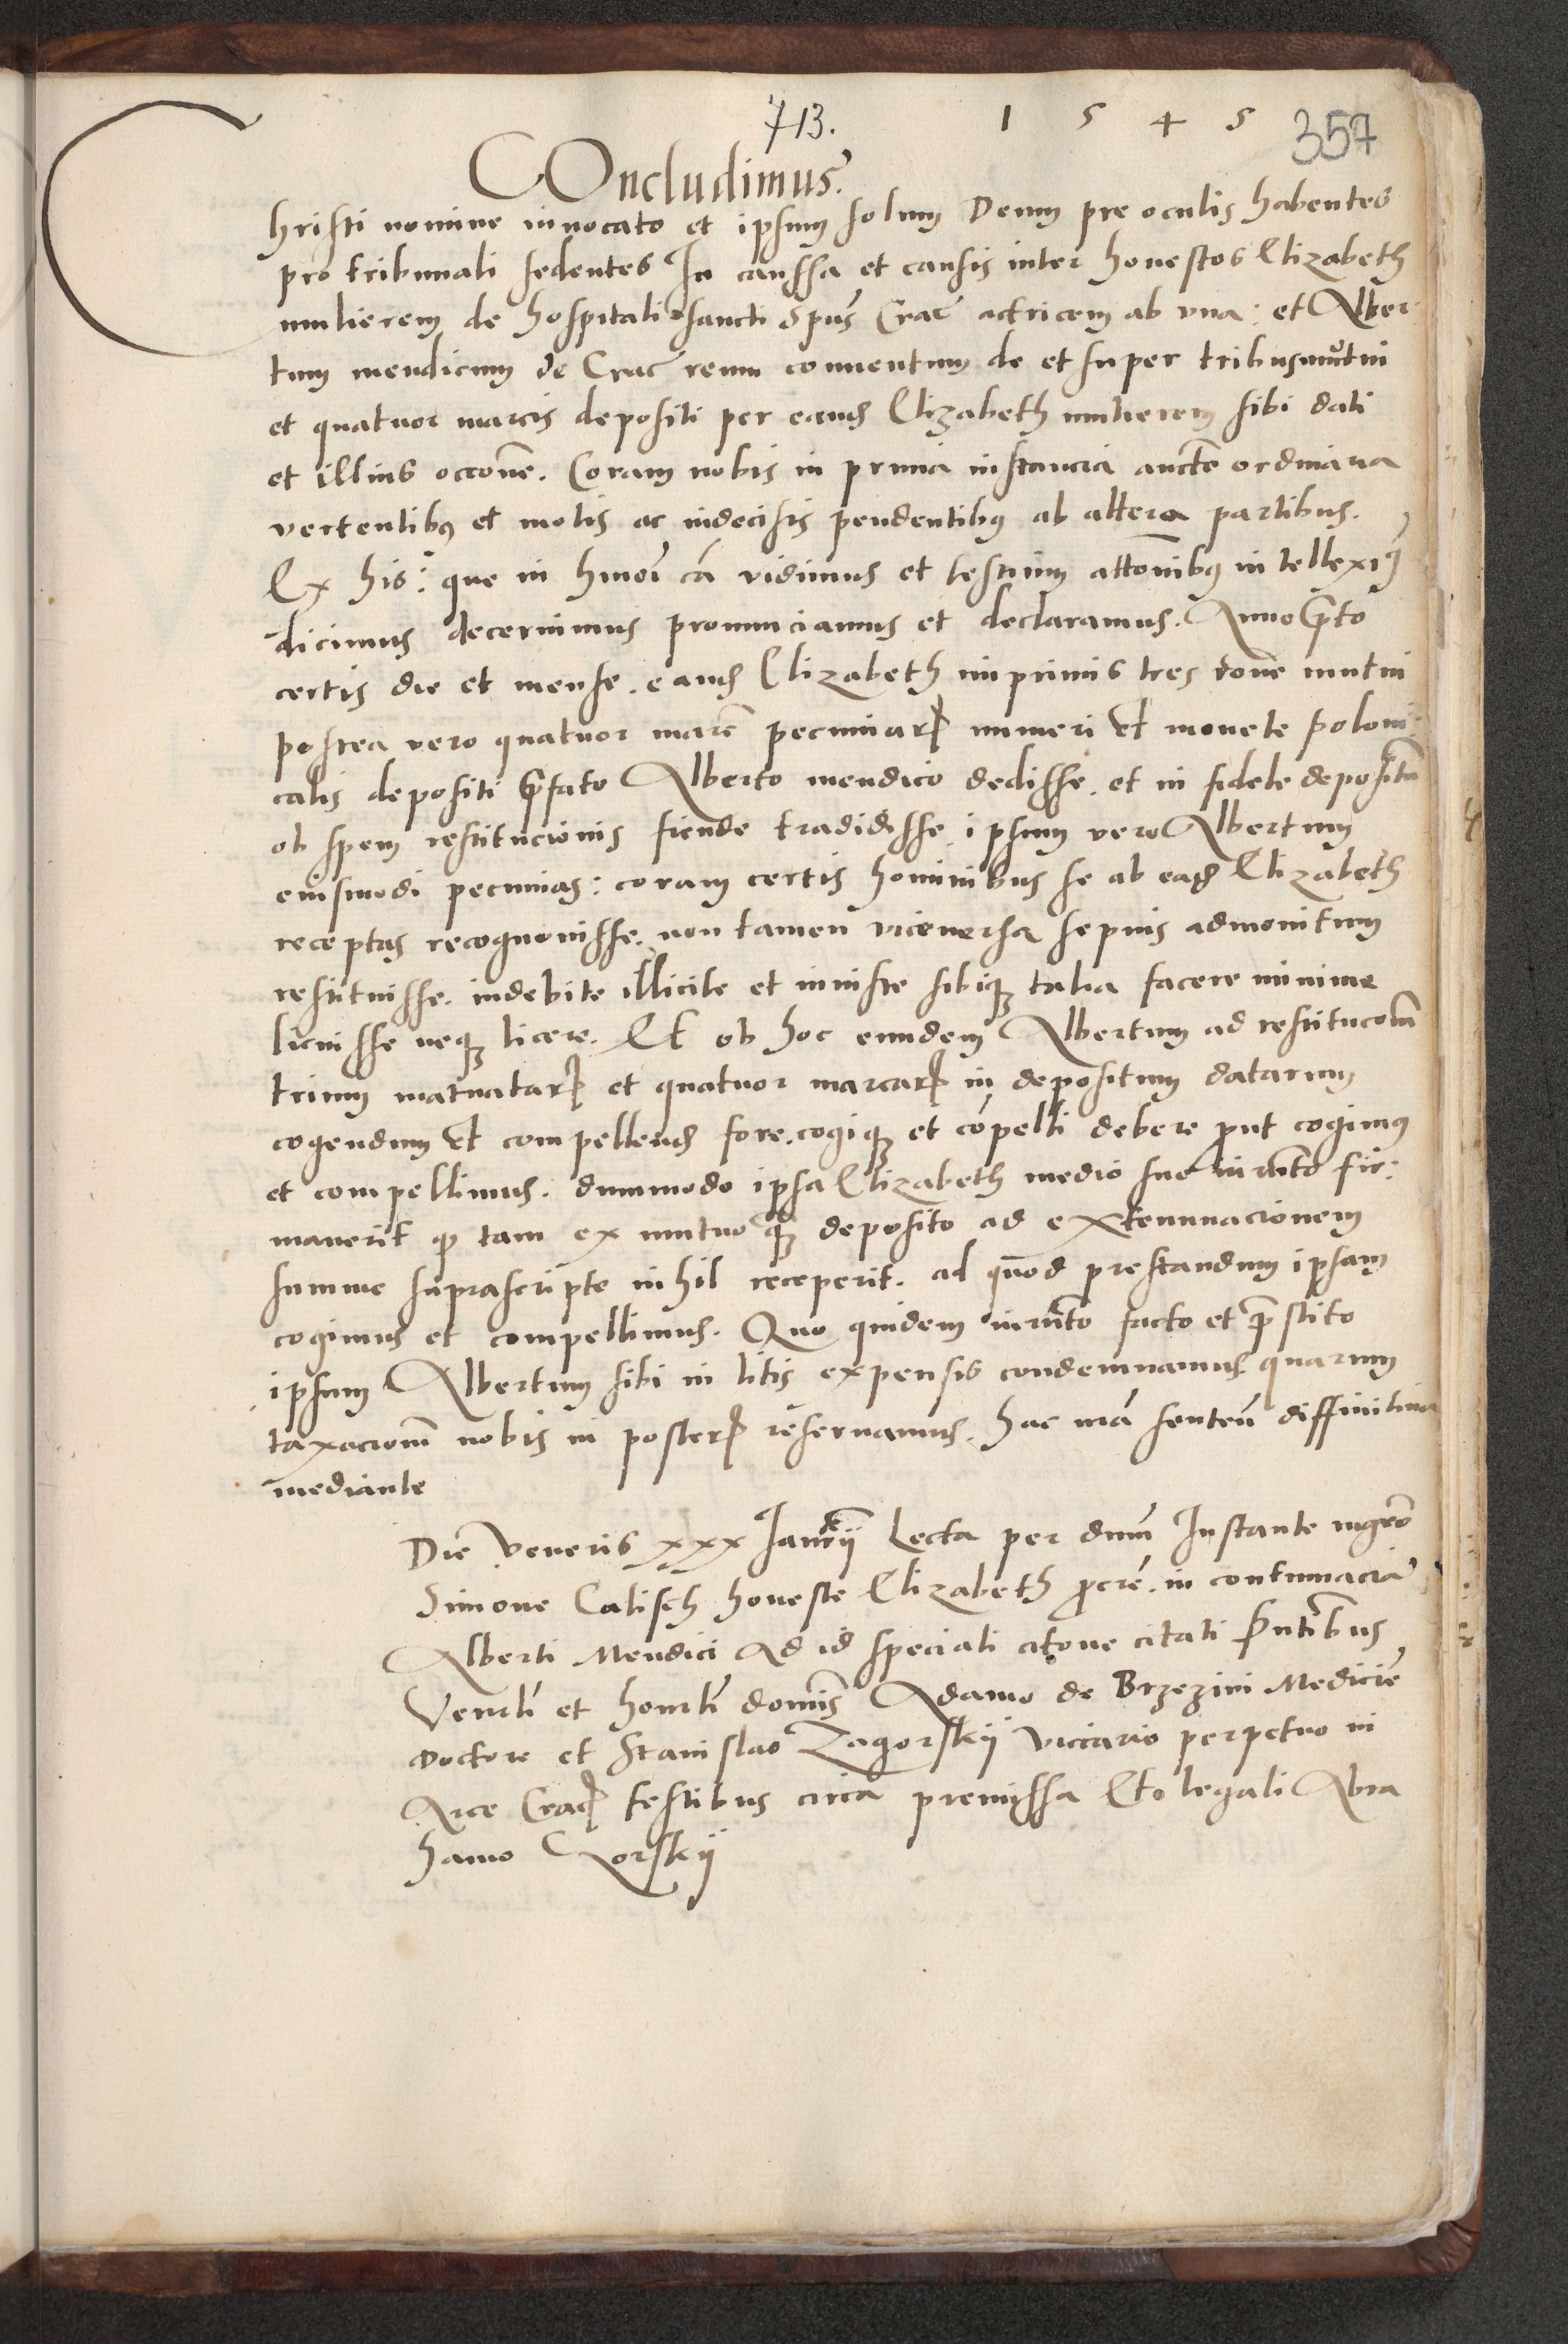 713. 1 5 4 5 357
COncludimus.
Christi nomine invocato et ipsum solum Deum pre oculis habentes
pro tribunali sedentes In caussa et causis inter honestos Elizabeth
mulierem de hospitali sancti Spūs Crac actricem ab vna: et Alber
tum mendicum de Crac reum conuentum de et super tribus mutui
et quatuor marcis depositi per eand Elizabeth mulierem sibi dati
et illius occōne. Coram nobis in prima instancia auctte ordinaria
vertentibꝫ et motis ac indecisis pendentibꝫ ab altera partibus.
Ex his: que in hmōi cā vidimus et testium attōnibꝫ intellexiꝫ
dicimus decernimus pronunciamus et declaramus. Anno p̄to
certis die et mense. eand Elizabeth imprimis tres rōne mutui
postea vero quatuor marc̄ pecuniarꝝ numeri et monete poloni
calis depositi p̄fato Alberto mendico dedisse. et in fidele depositū
ob spem restitucionis fiende tradidisse. ipsum vero Albertum
euismodi pecunias: coram certis hominibus se ab ead Elizabeth
receptas recognouisse. non tamen viceuersa sepius admonitum
restituisse. indebite illicite et iniuste sibiqꝫ talia facere minime
licuisse neqꝫ licere. Et ob hoc eundem Albertum ad restitucōm
trium mutuatarꝝ et quatuor marcarꝝ in depositum datarum
cogendum et compellend fore. cogiqꝫ et cōpelli debere prout cogimꝰ
et compellimus. dummodo ipsa Elizabeth medio suo iurānto fir:
mauerit qꝫ tam ex mutuo qꝫ deposito ad extenuuacionem
summe suprascripte nihil receperit. ad quod prestandum ipsam
cogimus et compellimus. Quo quidem iurānto facto et p̄stito
ipsum Albertum sibi in litis expensis condemnamus quarum
taxacionē nobis in posterꝝ reseruamus. hac nrā sentēn diffinitiua
mediante
Die Veneris xxx Ianrij Lecta per dnum Instante mgro
Simone Calisch honeste Elizabeth procrē. in contumaciā
Alberti Mendici Ad id speciali citōne citati p̄ntibus
Venrlī et honrlī dominis Adamo de Brzezini Medicine
doctore et Stanislao Zagorskij viccario perpetuo in
Arce Cracꝝ testibus circa premissa Et legali Abra
hamo Gorskij